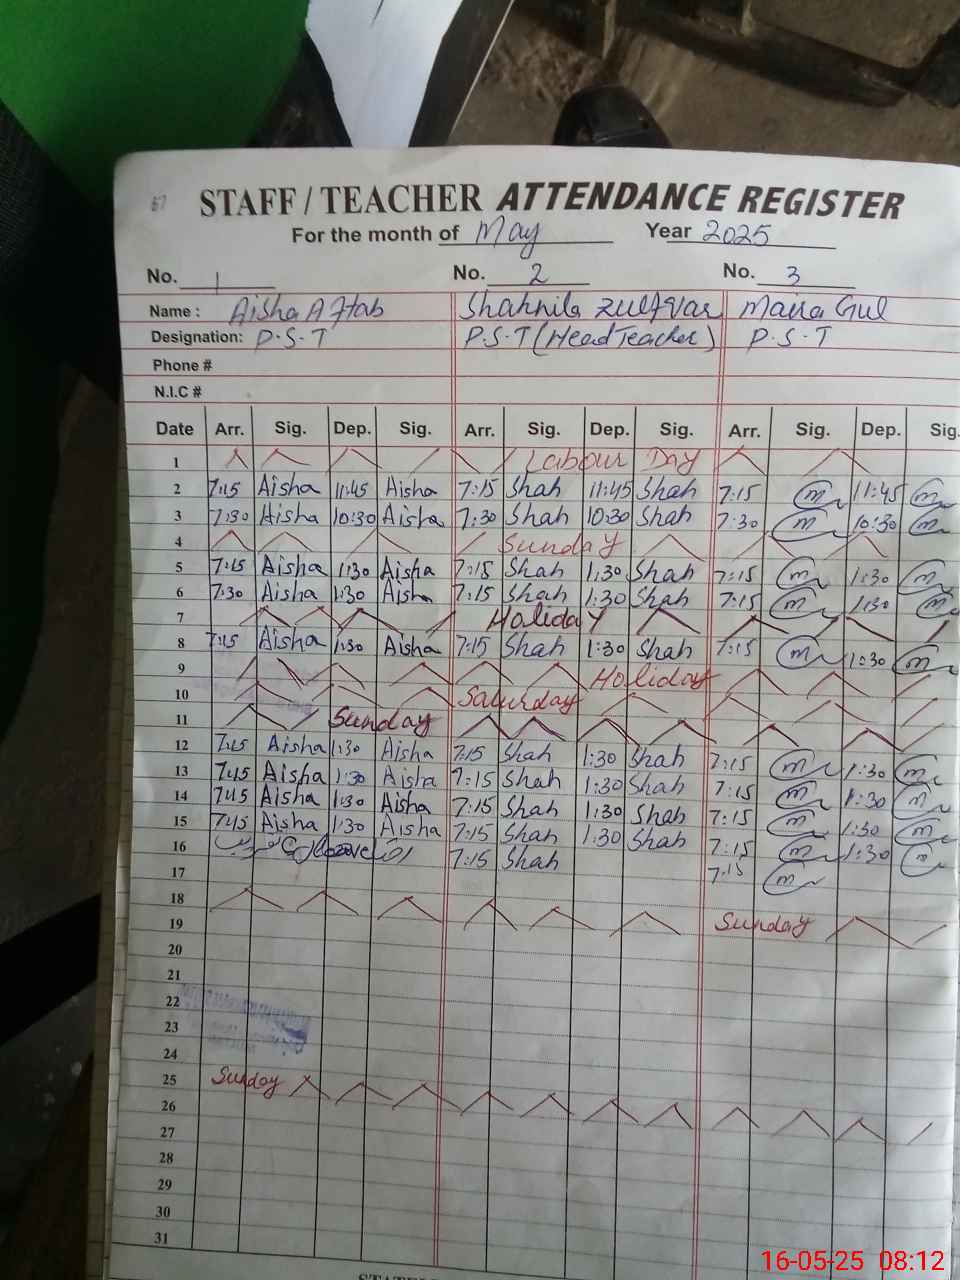 67 STAFF / TEACHER ATTENDANCE REGISTER
For the month of May Year 2025
No. 1 No. 2 No. 3
Name : Aisha Aftab Shahnila Zulfqar Maira Gul
Designation: P.S.T P.S.T (Head Teacher) P.S.T
Phone #
N.I.C #
Date Arr. Sig. Dep. Sig. Arr. Sig. Dep. Sig. Arr. Sig. Dep. Sig.
1 Labour Day
2 7:15 Aisha 11:45 Aisha 7:15 Shah 11:45 Shah 7:15 m 11:45 m
3 7:30 Aisha 10:30 Aisha 7:30 Shah 10:30 Shah 7:30 m 10:30 m
4 Sunday
5 7:15 Aisha 1:30 Aisha 7:15 Shah 1:30 Shah 7:15 m 1:30 m
6 7:30 Aisha 1:30 Aisha 7:15 Shah 1:30 Shah 7:15 m 1:30 m
7 Holiday
8 7:15 Aisha 1:30 Aisha 7:15 Shah 1:30 Shah 7:15 m 1:30 m
9 Holiday
10 Saturday
11 Sunday
12 7:15 Aisha 1:30 Aisha 7:15 Shah 1:30 Shah 7:15 m 1:30 m
13 7:15 Aisha 1:30 Aisha 7:15 Shah 1:30 Shah 7:15 m 1:30 m
14 7:15 Aisha 1:30 Aisha 7:15 Shah 1:30 Shah 7:15 m 1:30 m
15 7:15 Aisha 1:30 Aisha 7:15 Shah 1:30 Shah 7:15 m 1:30 m
16 7:15 Shah 7:15 m
17
18 Sunday
19
20
21
22
23
24
25 Sunday
26
27
28
29
30
31
16-05-25 08:12